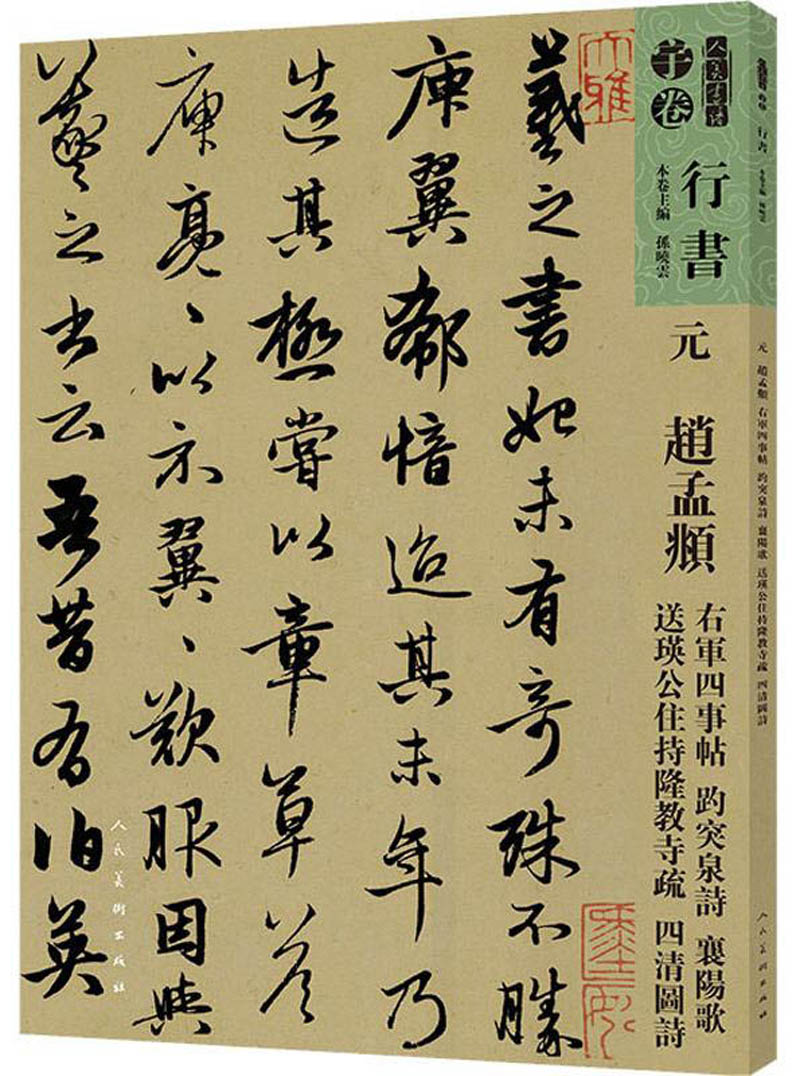 人美書譜
宇卷
行書
本卷主編 孫曉雲
元
趙孟頫
右軍四事帖 趵突泉詩 襄陽歌
送瑛公住持隆教寺疏 四清圖詩
大雅
羲之書始未有奇殊不勝
庾翼郗愔迨其末年乃
造其極嘗以章草答
庾亮、以示翼、歎服因與
羲之書云吾昔有伯英
人民美術出版社
行書
本卷主編 孫曉雲
元 趙孟頫 右軍四事帖 趵突泉詩 襄陽歌 送瑛公住持隆教寺疏 四清圖詩
人民美術出版社